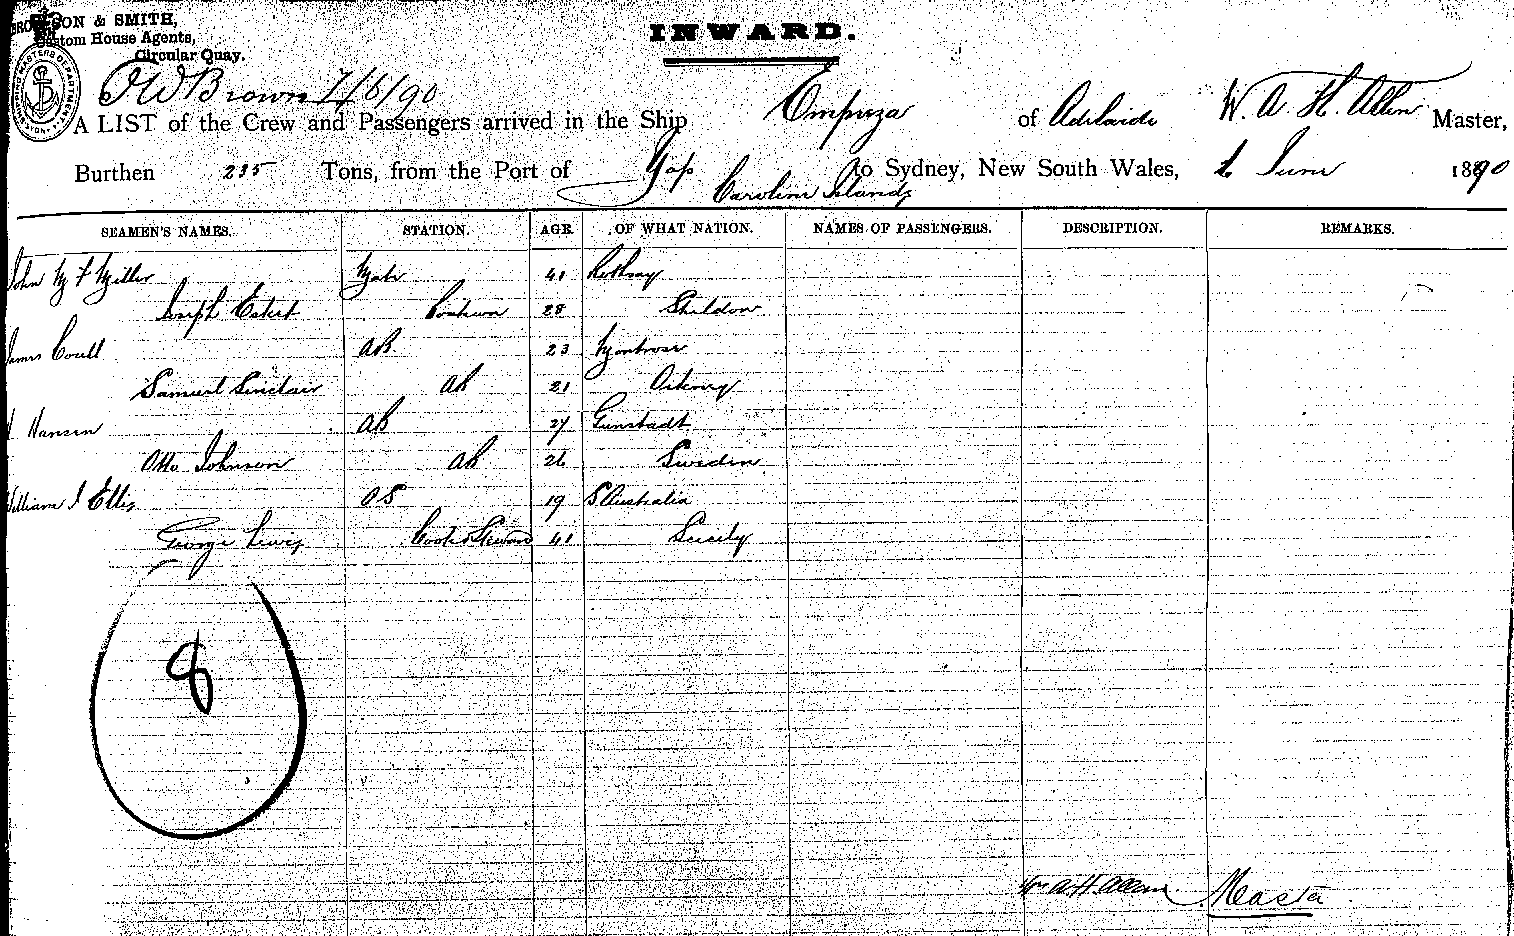 SON & SMITH,
Custom House Agents,
Circular Quay.
INWARD.
Brown 7/6/90
A LIST of the Crew and Passengers arrived in the Ship Empreza of Adelaide W. A. H. Allen Master,
Burthen 235 Tons, from the Port of Yap to Sydney, New South Wales, June 1890
Caroline Islands
SEAMEN'S NAMES. STATION. AGE. OF WHAT NATION. NAMES OF PASSENGERS. DESCRIPTION. REMARKS.
John M F Miller Mate 41 Rothsay
Joseph 28
James Coull AB 23 Montrose
Samuel Sinclair AB 21 Orkney
Hansen AB 27
Otto Johnson AB 26 Sweden
William J Ellis OS 19 S Australia
George Lewis Cook & Steward 41 Sicily
8
Wm A. H. Allen Master